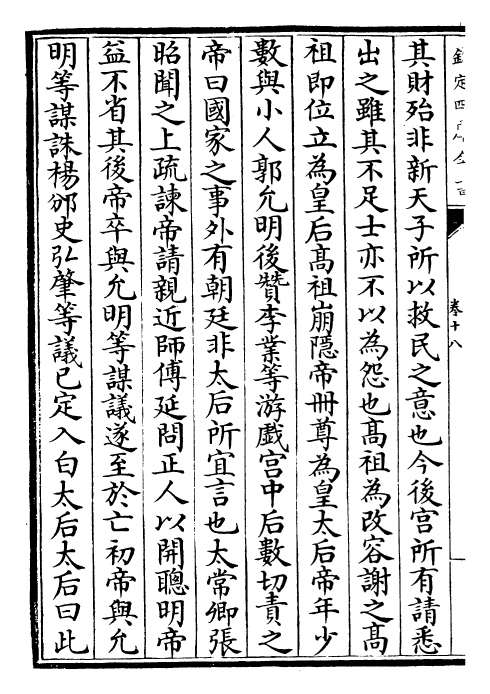 欽定四庫全書
卷十八
其財殆非新天子所以救民之意也今後宮所有請悉
出之雖其不足士亦不以為怨也髙祖為改容謝之髙
祖即位立為皇后髙祖崩隠帝冊尊為皇太后帝年少
數與小人郭允明後贊李業等游戲宫中后數切責之
帝曰國家之事外有朝廷非太后所宜言也太常卿張
昭聞之上疏諫帝請親近師傅延問正人以開聰明帝
益不省其後帝卒與允明等謀議遂至於亡初帝與允
明等謀誅楊邠史弘肇等議已定入白太后太后曰此